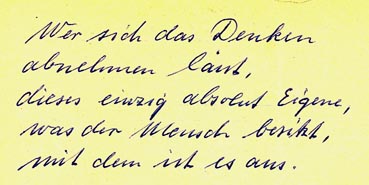 Wer sich das Denken
abnehmen lässt,
dieses einzig absolut Eigene,
was der Mensch besitzt,
mit dem ist es aus.